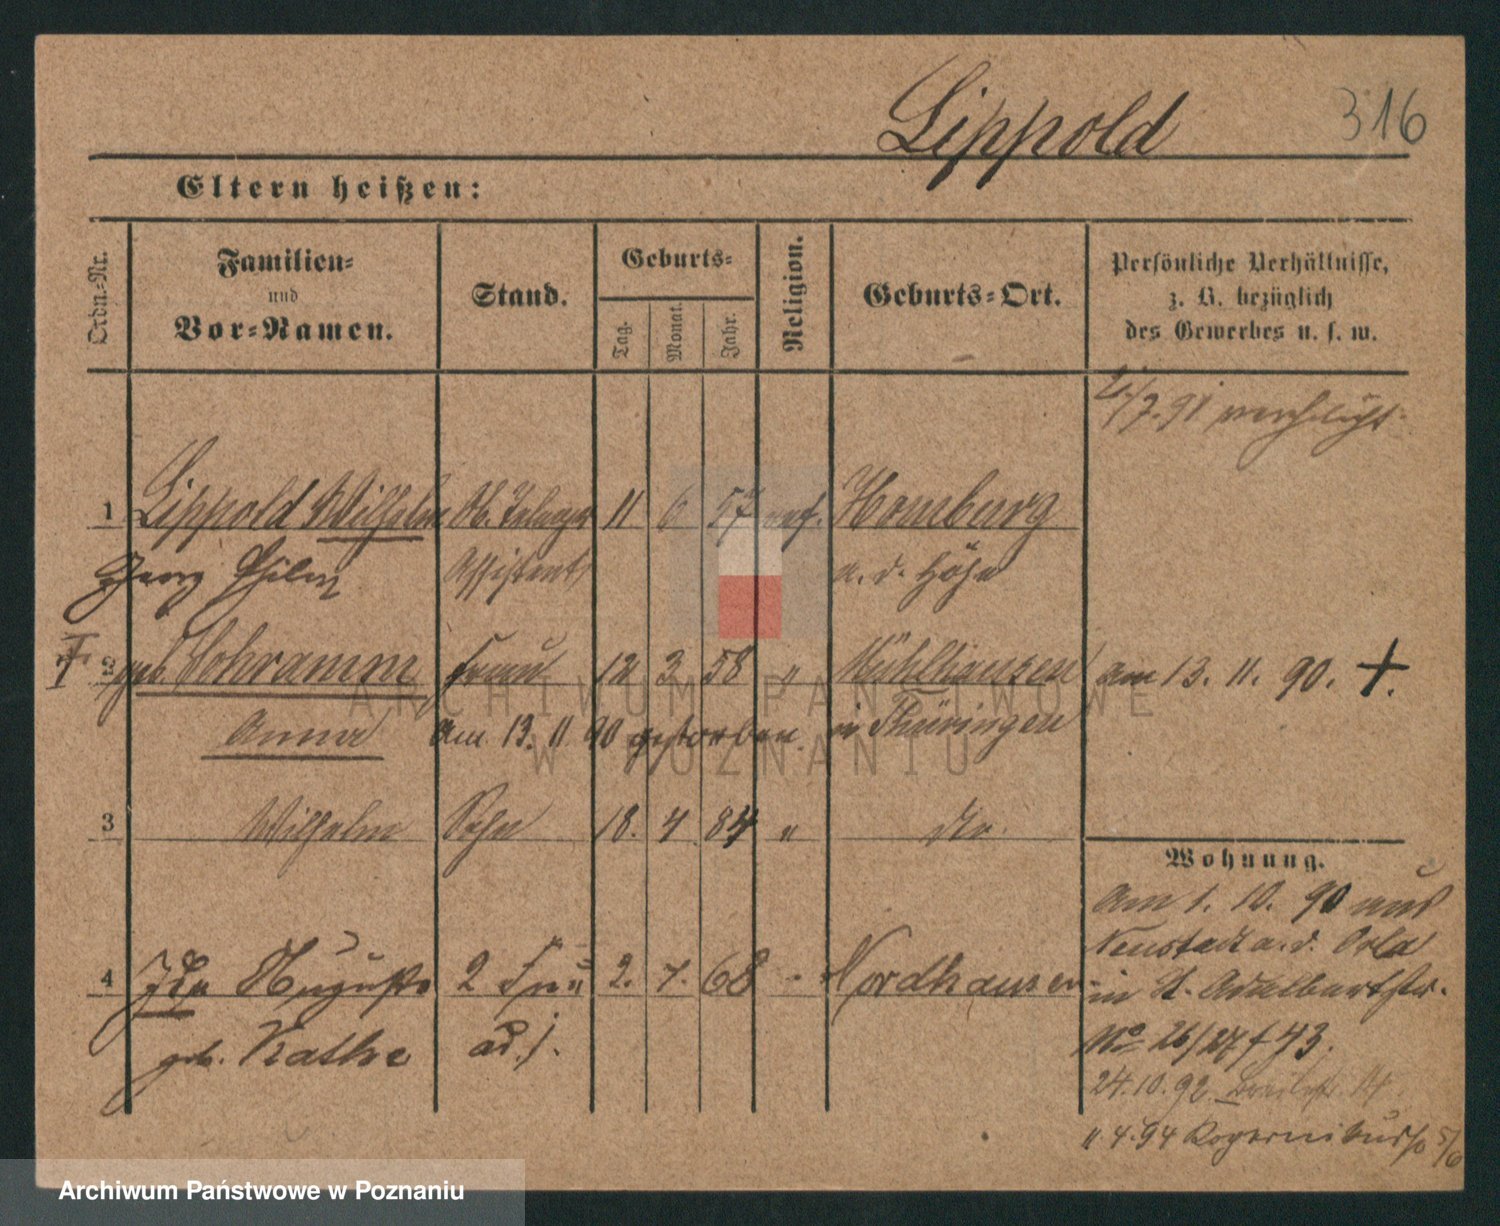 Lippold 316
Eltern heißen:
Ordn.-Nr. Familien- und Vor-Namen. Stand. Geburts- Tag. Monat. Jahr. Religion. Geburts-Ort. Persönliche Verhältnisse, z. B. bezüglich des Gewerbes u. s. w.
/7. 91
1 Lippold Wilhelm 11 6 57 Homburg
Georg Assistent a. d. Höhe
2 geb. Schramm Frau 12 3 58 " Mühlhausen am 13. 11. 90. +.
Anna am 13. 11 90 gestorben. in Thüringen
3 Wilhelm Sohn 18. 4 84 " do.
Wohnung.
am 1. 10. 90 aus
Neustadt a. d. Orla
4 Ida Auguste 2 Frau 2. 7. 68 - Nordhausen
in St. Adalbertstr.
geb. Kathe ad. 1. No 26/27 f 43.
24. 10. 92
11. 4. 94 5/6
ARCHIWUM PAŃSTWOWE
W POZNANIU
Archiwum Państwowe w Poznaniu